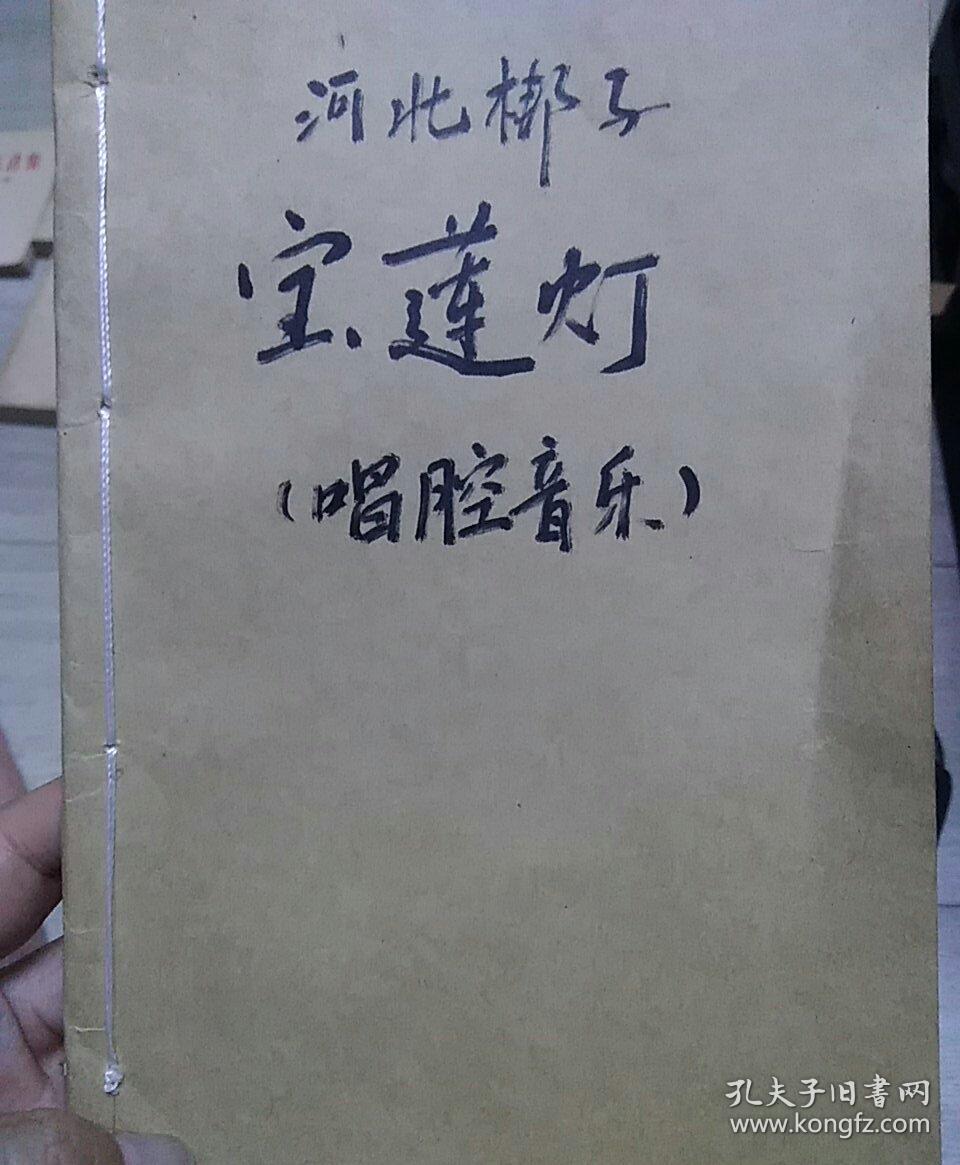 河北梆子
宝莲灯
(唱腔音乐)
孔夫子旧書网
www.kongfz.com